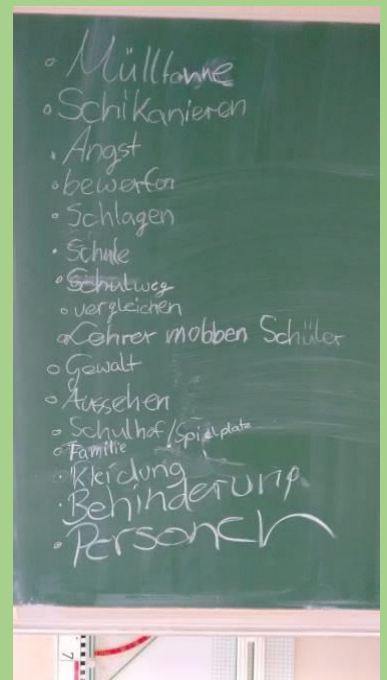 • Mülltonne
• Schikanieren
• Angst
• bewerfen
• Schlagen
• Schule
• Schulweg
• vergleichen
• Lehrer mobben Schüler
• Gewalt
• Aussehen
• Schulhof/Spielplatz
• Familie
• Kleidung
• Behinderung
• Personen
7